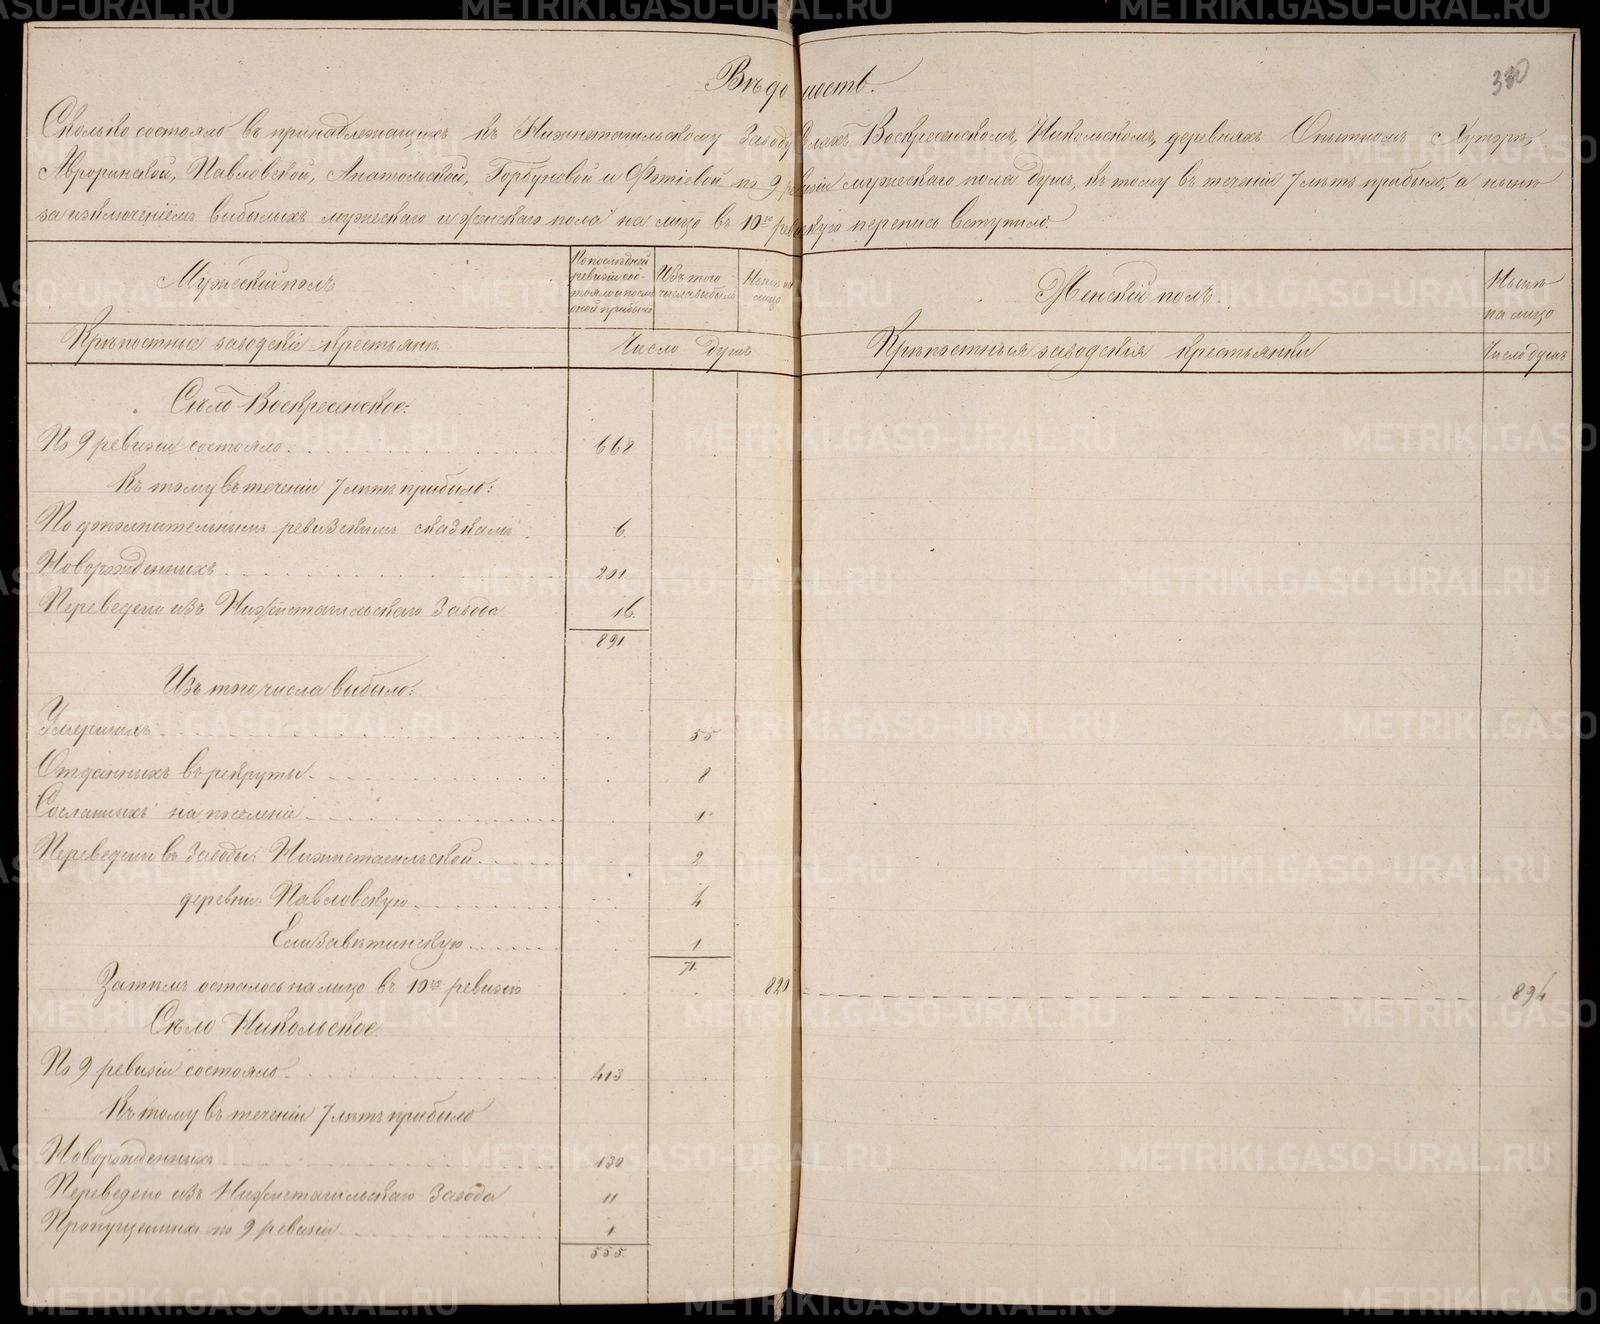 330
Вѣдомость.
Сколько состояло въ принадлежащихъ къ Нижнетагильскому Заводу Селахъ Воскресенскомъ, Никольскомъ, деревняхъ Опытномъ Хуторѣ,
Авроринской, Павловской, Анатольской, Горбуновой и Фотіевой по 9 ревизіи мужескаго пола душъ, къ тому въ теченіи 7 лѣтъ прибыло, а нынѣ
за изключеніемъ выбылыхъ мужескаго и женскаго пола на лицо въ 10ю ревизскую перепись вступило.
Мужескій полъ
По последней ревизіи состояло и после оной прибыло
Изъ того числа выбыло
Нынѣ на лицо
Женскій полъ.
Нынѣ на лицо
Крѣпостные заводскіе крестьянъ
Число душъ
Крѣпостныя заводскія крестьянки
Число душъ
Сѣло Воскресенское:
По 9 ревизіи состояло 668
Къ тому въ теченіи 7 лѣтъ прибыло:
По дополнительнымъ ревизскимъ сказкамъ 6.
Новорожденныхъ 201
Переведено изъ Нижнетагильскаго Завода 16.
891.
Изъ того числа выбыло:
Умершихъ 55
Отданныхъ въ рекруты 8
Сосланныхъ на поселеніе 1
Переведены въ Заводы: Нижнетагильской 2
деревни: Павловскую 4
Елизаветинскую 1
71.
Затѣмъ осталось на лицо въ 10ю ревизію 820 894
Сѣло Никольское
По 9 ревизіи состояло 413
Къ тому въ теченіи 7 лѣтъ прибыло
Новорожденныхъ 130
Переведено изъ Нижнетагильскаго Завода 11
Пропущенныхъ по 9 ревизіи 1.
555.
METRIKI.GASO-URAL.RU